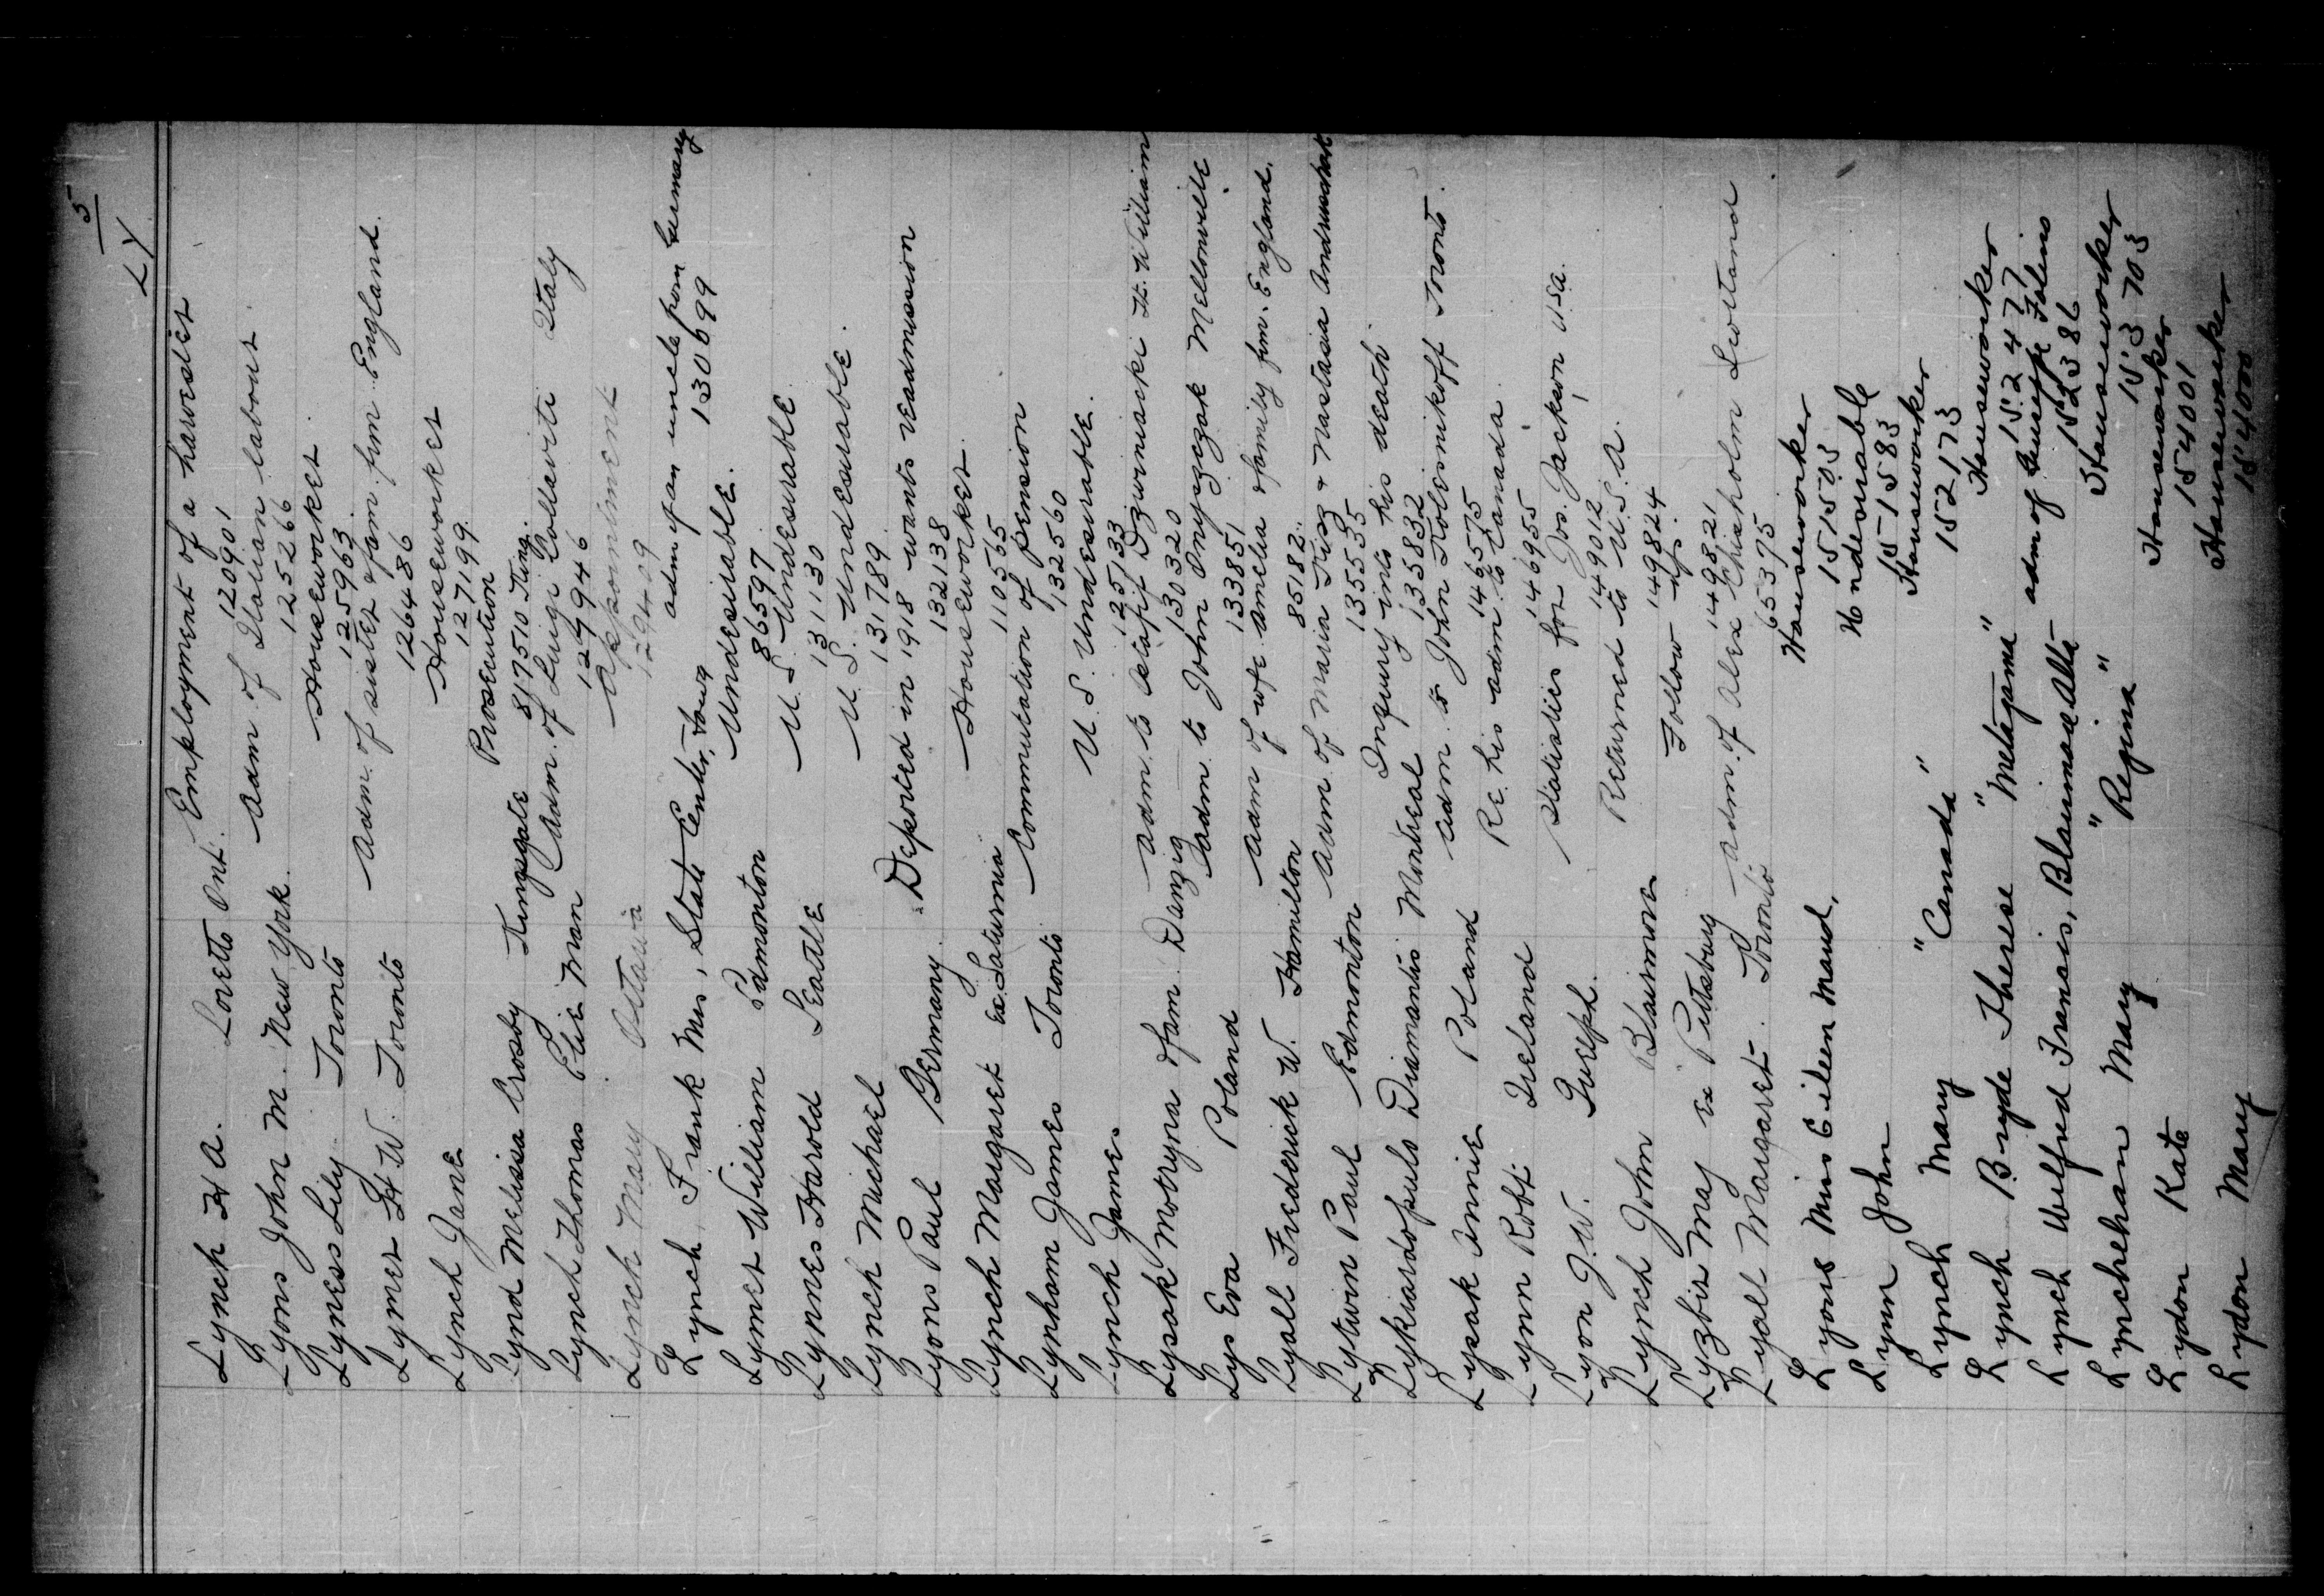 5
LY
Lynch H A. Loretto Ont. Employment of a harvester
120901
Lyons John M. New York. Adm of Italian labour
125266
Lyness Lily Toronto Houseworker
125963
Lymer H W. Toronto Adm. of sister & fam. frm England.
126486
Lynch Jane Houseworker
127199
Lynd Melissa Crosby Kingsgate Prosecution
817510
Lynch Thomas Elie Man Adm. of Luigi Italy
129946
Lynch Mary Ottawa
129409
Lynch Frank Mrs, State Center, Iowa adm of an uncle from Germany
130699
Lymer William Edmonton Undesirable.
86597
Lynnes Harold Seattle U. S. Undesirable
131130
Lynch Michael U S. Undesirable.
131789
Lyons Paul Germany. Deported in 1918 wants readmission
132138
Lynch Margaret ex. Saturnia Houseworker.
110565
Lynham James Toronto Commutation of pension
132560
Lynch James U. S. Undesirable.
125133
Lysak Motryna & fam. Danzig Adm. to Ft. William
130320
Lys Eva Poland Adm to John Mellonville
133851
Lyall Frederick W. Hamilton Adm of wfe Amelia & family frm. England.
85182
Lytwin Paul Edmonton Adm. of Maria & Nastasia
135535
Diamantis Montreal Inquiry into his death.
135832
Lysak Annie Poland Adm. to John Kolesnikoff Toronto.
146575
Lynn Robt Ireland Re. his adm. to Canada.
146955
Lyon J. W. Guelph. Statistics for Jos. Jackson, U.S.A.
149012
Lynch John Blairmore Returned to U.S.A.
149824
Lyzbir May ex Pittsburg Follow up.
149821
Lyall Margaret Toronto Adm. of Alex Chisholm Scotland
65375
Lyons Miss Eileen Maud, Houseworker
151503
Lynn John Undesirable
151583
Lynch Mary "Canada" Houseworker
152173
Lynch Bryde Therese "Metagama" Houseworker
152477
Lynch Wilfred Francis, Blairmore Alta adm of Giuseppe
152386
Lynchehan Mary "Regina" Houseworker
153703
Lydon Kate Houseworker
154001
Lydon Mary Houseworker
154000